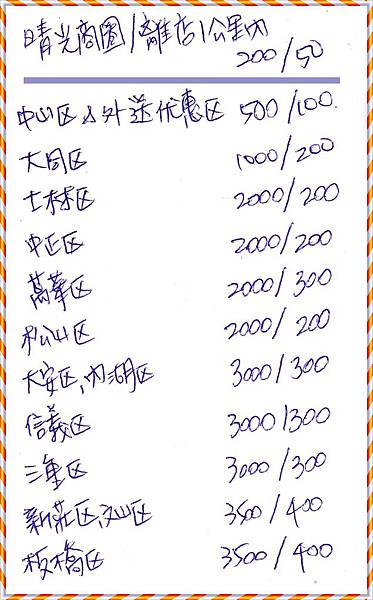 晴光商圈/離店1公里內
200/50
中山区&外送优惠区 500/100
大同区 1000/200
士林区 2000/200
中正区 2000/200
萬華区 2000/300
松山区 2000/200
大安区,內湖区 3000/300
信義区 3000/300
三重区 3000/300
新莊区,文山区 3500/400
板橋区 3500/400